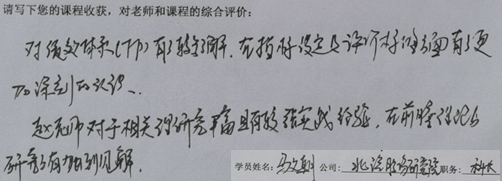 请写下您的课程收获，对老师和课程的综合评价：
对绩效体系(TP)有了较了解，在指标设定及评价标准方面有了更
加深刻的认识。
赵老师对于相关理研究丰富且有较强实践经验，在前瞻性
研究有独到见解。
学员姓名： 公司：北 研究院 职务：科长